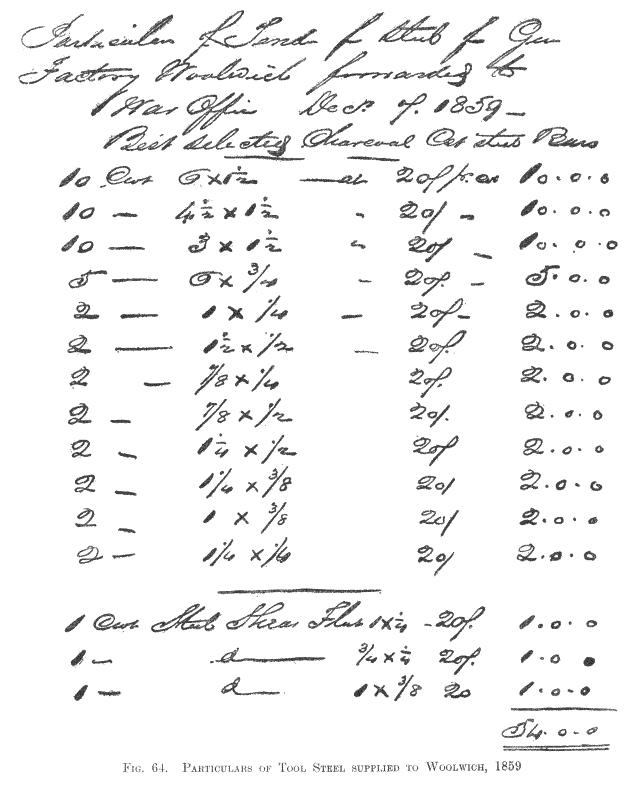 Particulars of Tender for Steel for Gun
Factory Woolwich forwarded to
War Office Decr. 7. 1859 —
Best selected Charcoal Cast steel Bars
10 Cwt 6 x 1½ — at 20/ per cwt 10.0.0
10 — 4½ x 1½ " 20/ — 10.0.0
10 — 3 x 1½ " 20/ — 10.0.0
5 — 6 x 3/4 — 20/. — 5.0.0
2 — 1 x 1/4 — 20/- 2.0.0
2 — 1½ x 1/2 — 20/. 2.0.0
2 — 7/8 x 1/4 20/. 2.0.0
2 — 7/8 x 1/2 20/. 2.0.0
2 — 1¼ x 1/2 20/ 2.0.0
2 — 1¼ x 3/8 20/ 2.0.0
2 — 1 x 3/8 20/ 2.0.0
2 — 1¼ x 1/4 20/ 2.0.0
1 Cwt Steel Shear Flat 1 x ¼ - 20/. 1.0.0
1 — d — 3/4 x ¼ 20/. 1.0.0
1 — d — 1 x 3/8 20 1.0.0
54.0.0
FIG. 64. PARTICULARS OF TOOL STEEL SUPPLIED TO WOOLWICH, 1859